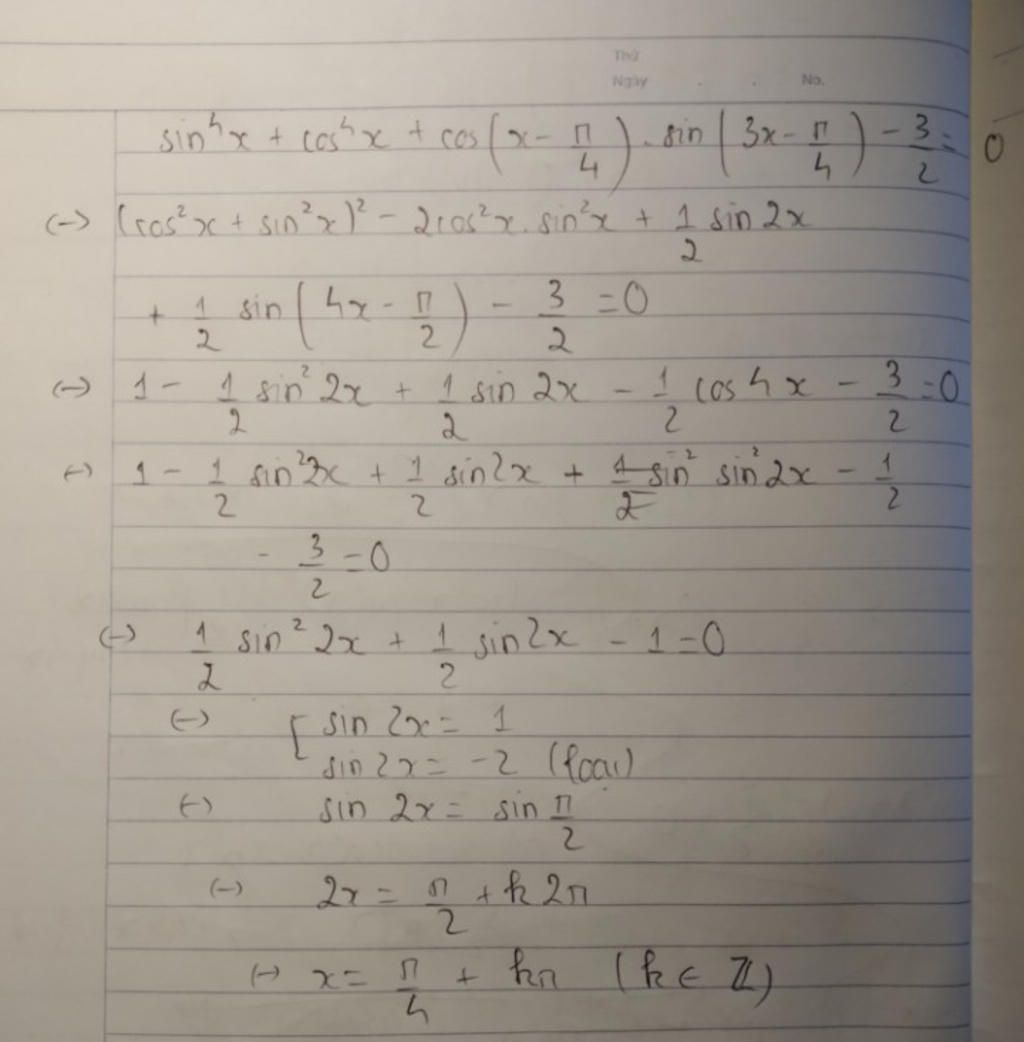 Thứ
Ngày . . No.
sin⁴x + cos⁴x + cos(x - π/4) . sin(3x - π/4) - 3/2 = 0
(-) (cos²x + sin²x)² - 2cos²x . sin²x + 1/2 sin 2x
+ 1/2 sin(4x - π/2) - 3/2 = 0
(-) 1 - 1/2 sin² 2x + 1/2 sin 2x - 1/2 cos 4x - 3/2 = 0
(-) 1 - 1/2 sin² 2x + 1/2 sin 2x + sin² 2x - 1/2
- 3/2 = 0
(-) 1/2 sin² 2x + 1/2 sin 2x - 1 = 0
(-) [ sin 2x = 1
sin 2x = -2 (loại)
(-) sin 2x = sin π/2
(-) 2x = π/2 + k2π
(-) x = π/4 + kπ (k ∈ ℤ)